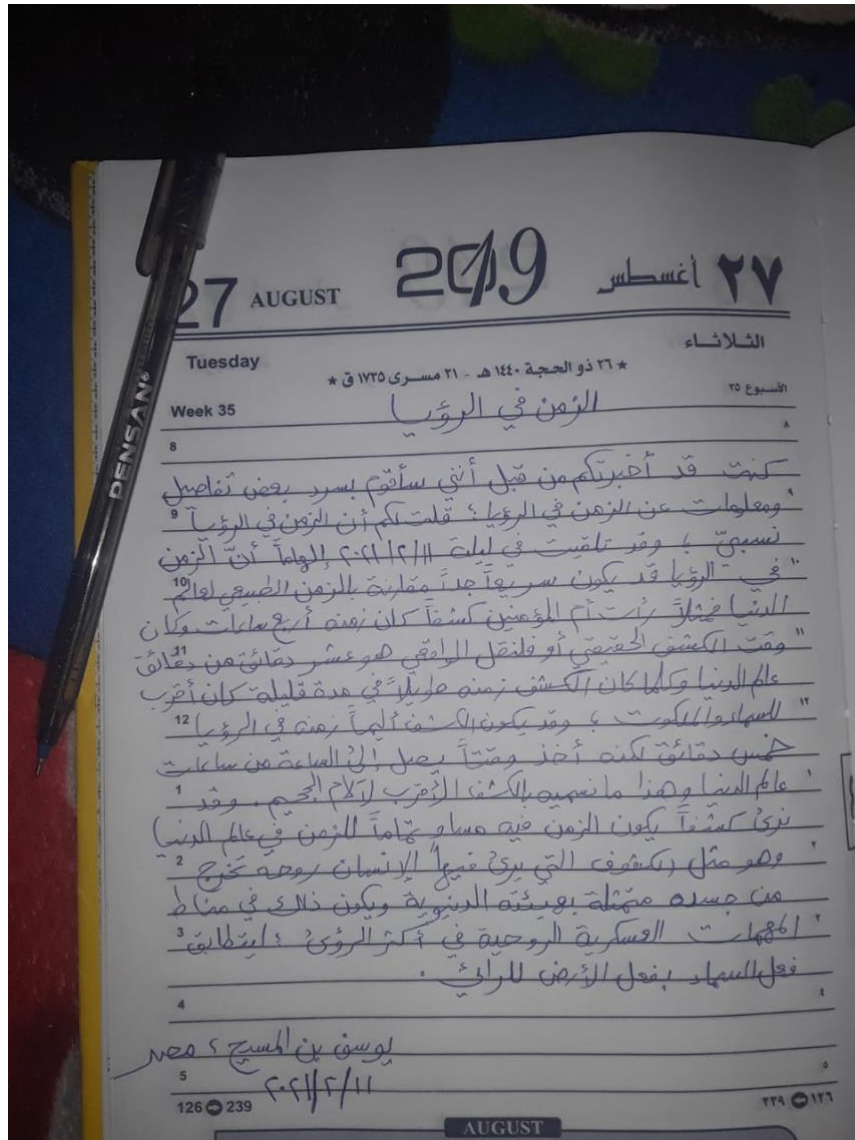 27 AUGUST 2019 ٢٧ أغسطس
Tuesday الثلاثاء
★ ٢٦ ذو الحجة ١٤٤٠ هـ - ٢١ مسرى ١٧٣٥ ق ★
Week 35 الأسبوع ٣٥
الزمن في الرؤيا
8 ٨
كنت قد أخبرتكم من قبل أنني سأقوم بسرد بعض تفاصيل
9 ٩ ومعلومات عن الزمن في الرؤيا ؛ قلت لكم أن الزمن في الرؤيا
نسبيّ ؛ وقد تلقيت في ليلة ٢٠٢١/٢/١١ إلهاماً أنّ الزمن
10 ١٠ في الرؤيا قد يكون سريعاً جداً مقارنة بالزمن الطبيعي لعالم
الدنيا فمثلاً رأت أم المؤمنين كشفاً كان زمنه أربع ساعات وكان
11 ١١ وقت الكشف الحقيقي أو فلنقل الواقعي هو عشر دقائق من دقائق
عالم الدنيا وكلما كان الكشف زمنه طويلاً في مدة قليلة كان أقرب
12 ١٢ للسماء والملكوت ؛ وقد يكون الكشف أليماً زمنه في الرؤيا
خمس دقائق لكنه أخذ وقتاً يصل إلى الساعة من ساعات
1 ١ عالم الدنيا وهذا ما نسميه بالكشف الأقرب لآلام الجحيم . وقد
نرى كشفاً يكون الزمن فيه مساوٍ تماماً للزمن في عالم الدنيا
2 ٢ وهو مثل الكشوف التي يرى فيها الإنسان روحه تخرج
من جسده متمثلة بهيئته الدنيوية ويكون ذلك في مناط
3 ٣ المهمات العسكرية الروحية في أكثر الرؤى ؛ ليتطابق
فعل السماء بفعل الأرض للرائي .
4 ٤
يوسف بن المسيح ؛ مصر
5 ٥
٢٠٢١/٢/١١
126 239 ٢٣٩ ١٢٦
AUGUST
PENSAN